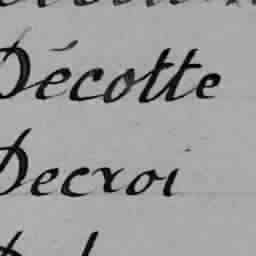 Décotte
Decroi